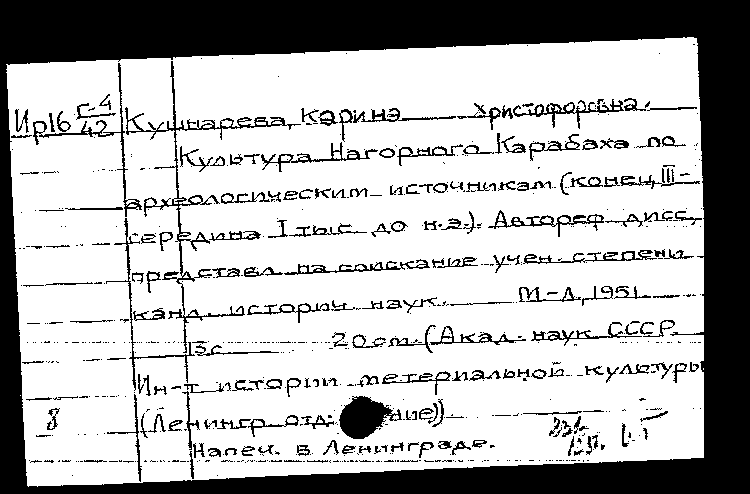 Ир16 Г-4/42 Кушнарева, Каринэ Христофоровна.
Культура Нагорного Карабаха по
археологическим источникам (конец III-
середина I тыс до н.э.). Автореф дисс,
представл на соискание учен. степени
канд. историч наук. М-Л, 1951.
13с 20 см. (Акад. наук СССР.
Ин-т истории метериальной культуры
8 (Ленингр отд: ние)).
Напеч. в Ленинграде.